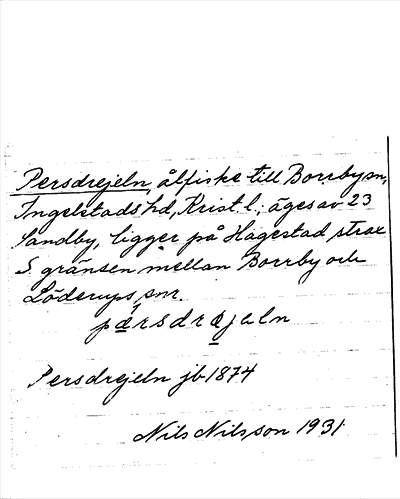 Persdrejeln, ålfiske till Borrby sn,
Ingelstads hd, Krist. l.; äges av 23
Sandby, ligger på Hagestad strax
S gränsen mellan Borrby och
Löderups snr.
pæ̱rsdræ̱jəln
Persdrejeln jb 1874
Nils Nilsson 1931